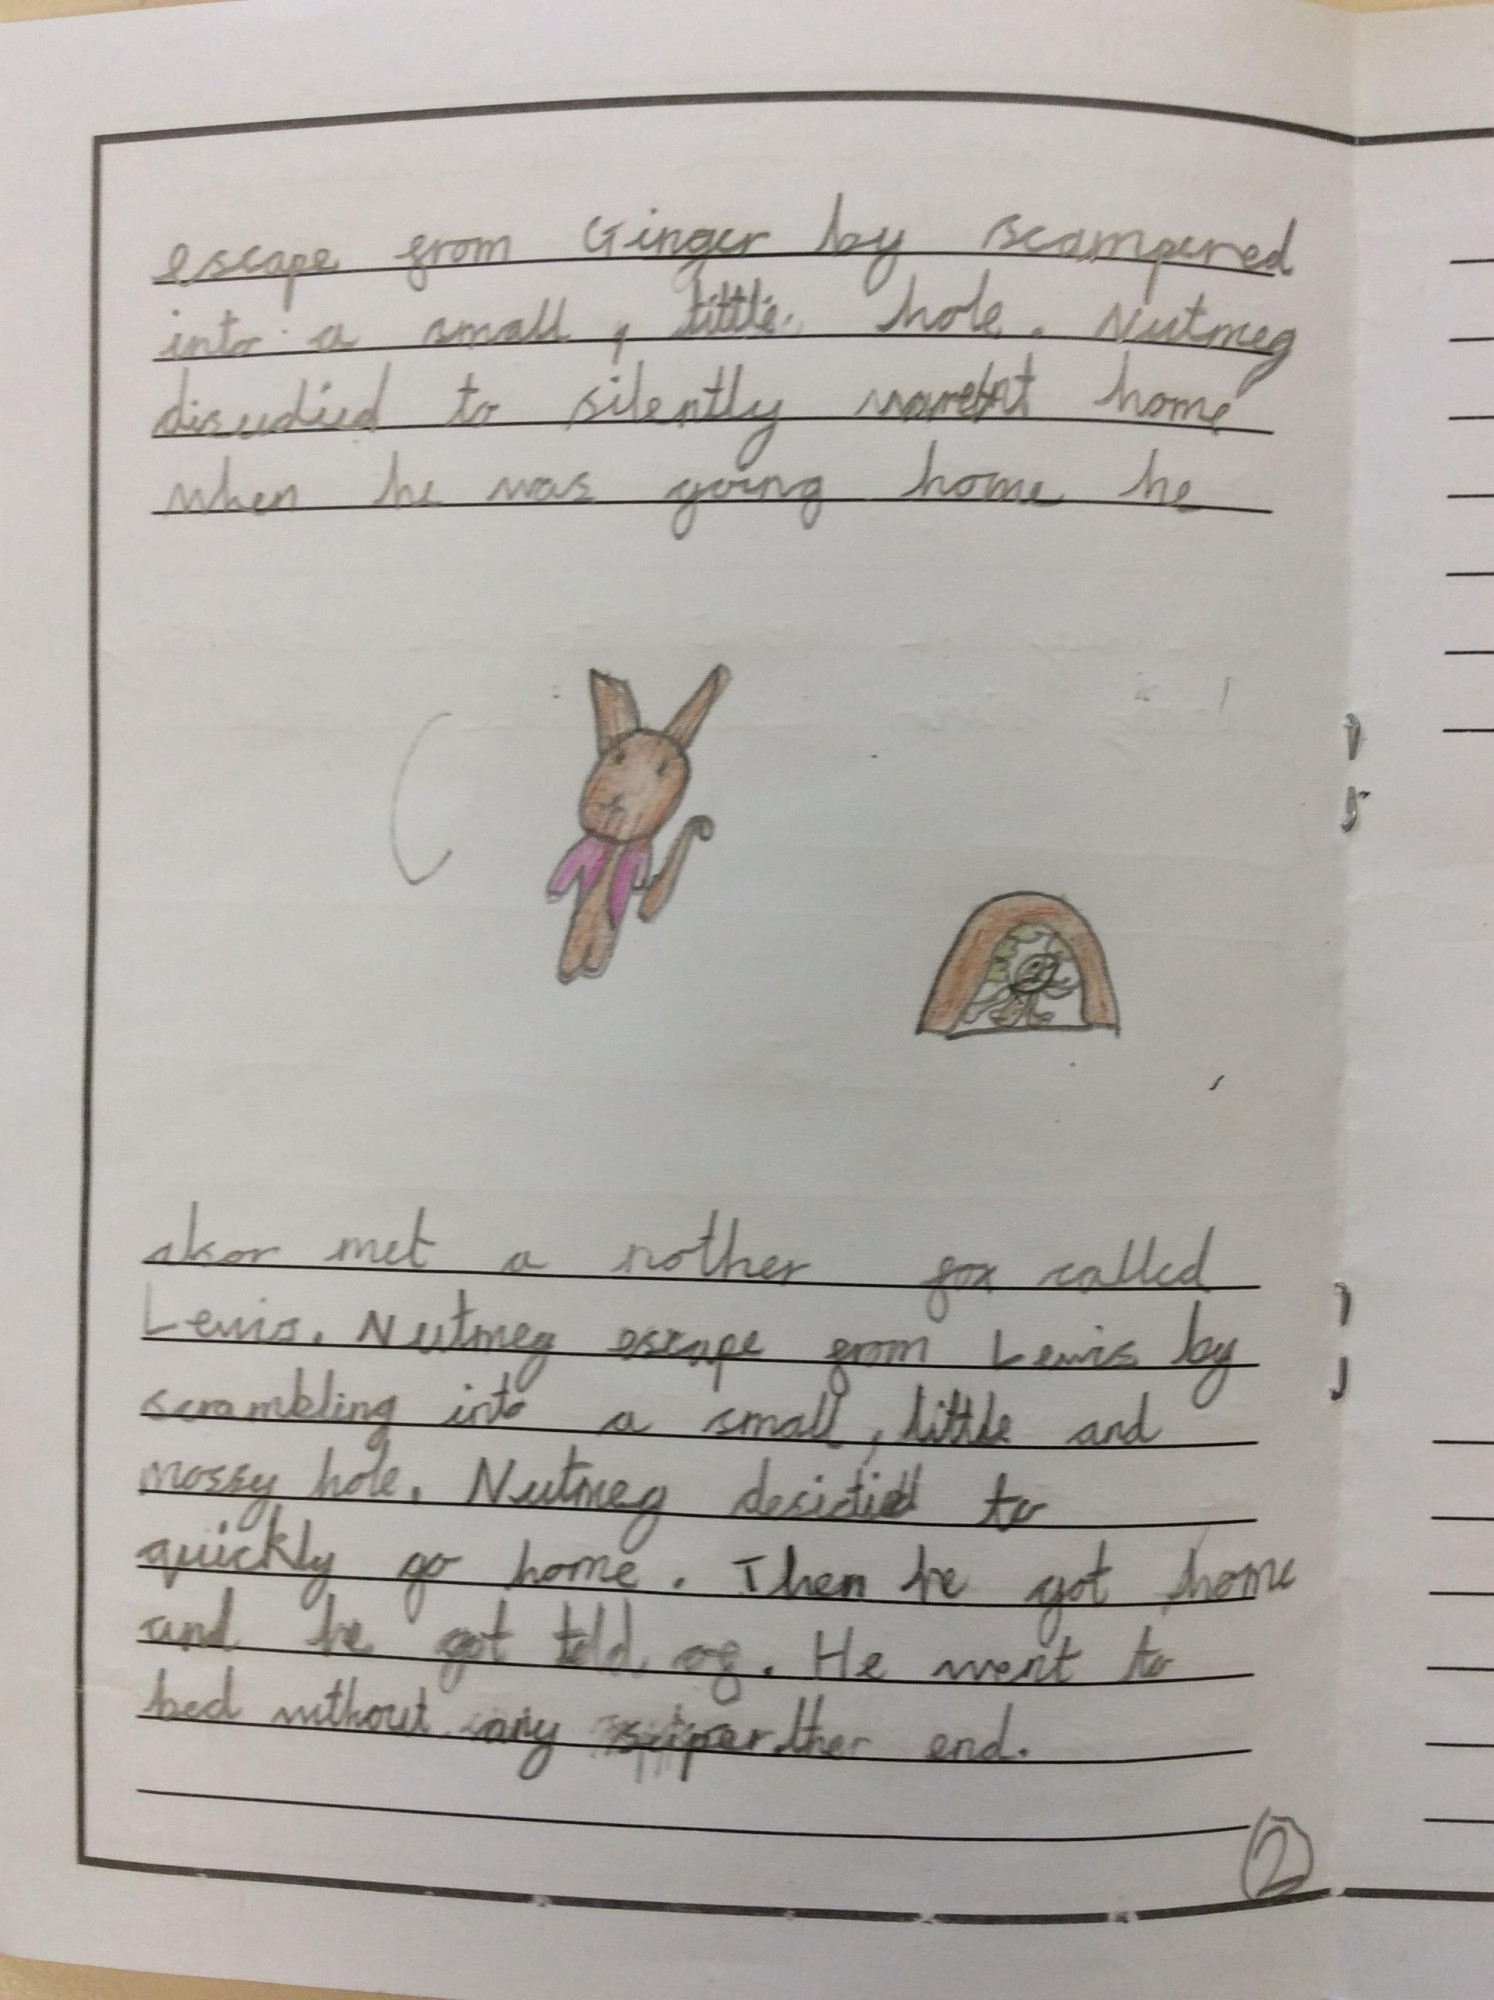 escape from Ginger by scampered
into a small, little hole. Nutmeg
disudied to silently home
when he was going home he
met a nother fox called
Lewis. Nutmeg escape from Lewis by
scrambling into a small, little and
mossy hole. Nutmeg to
quickly go home. Then he got home
and he got told of. He went to
bed without any ther end.
2